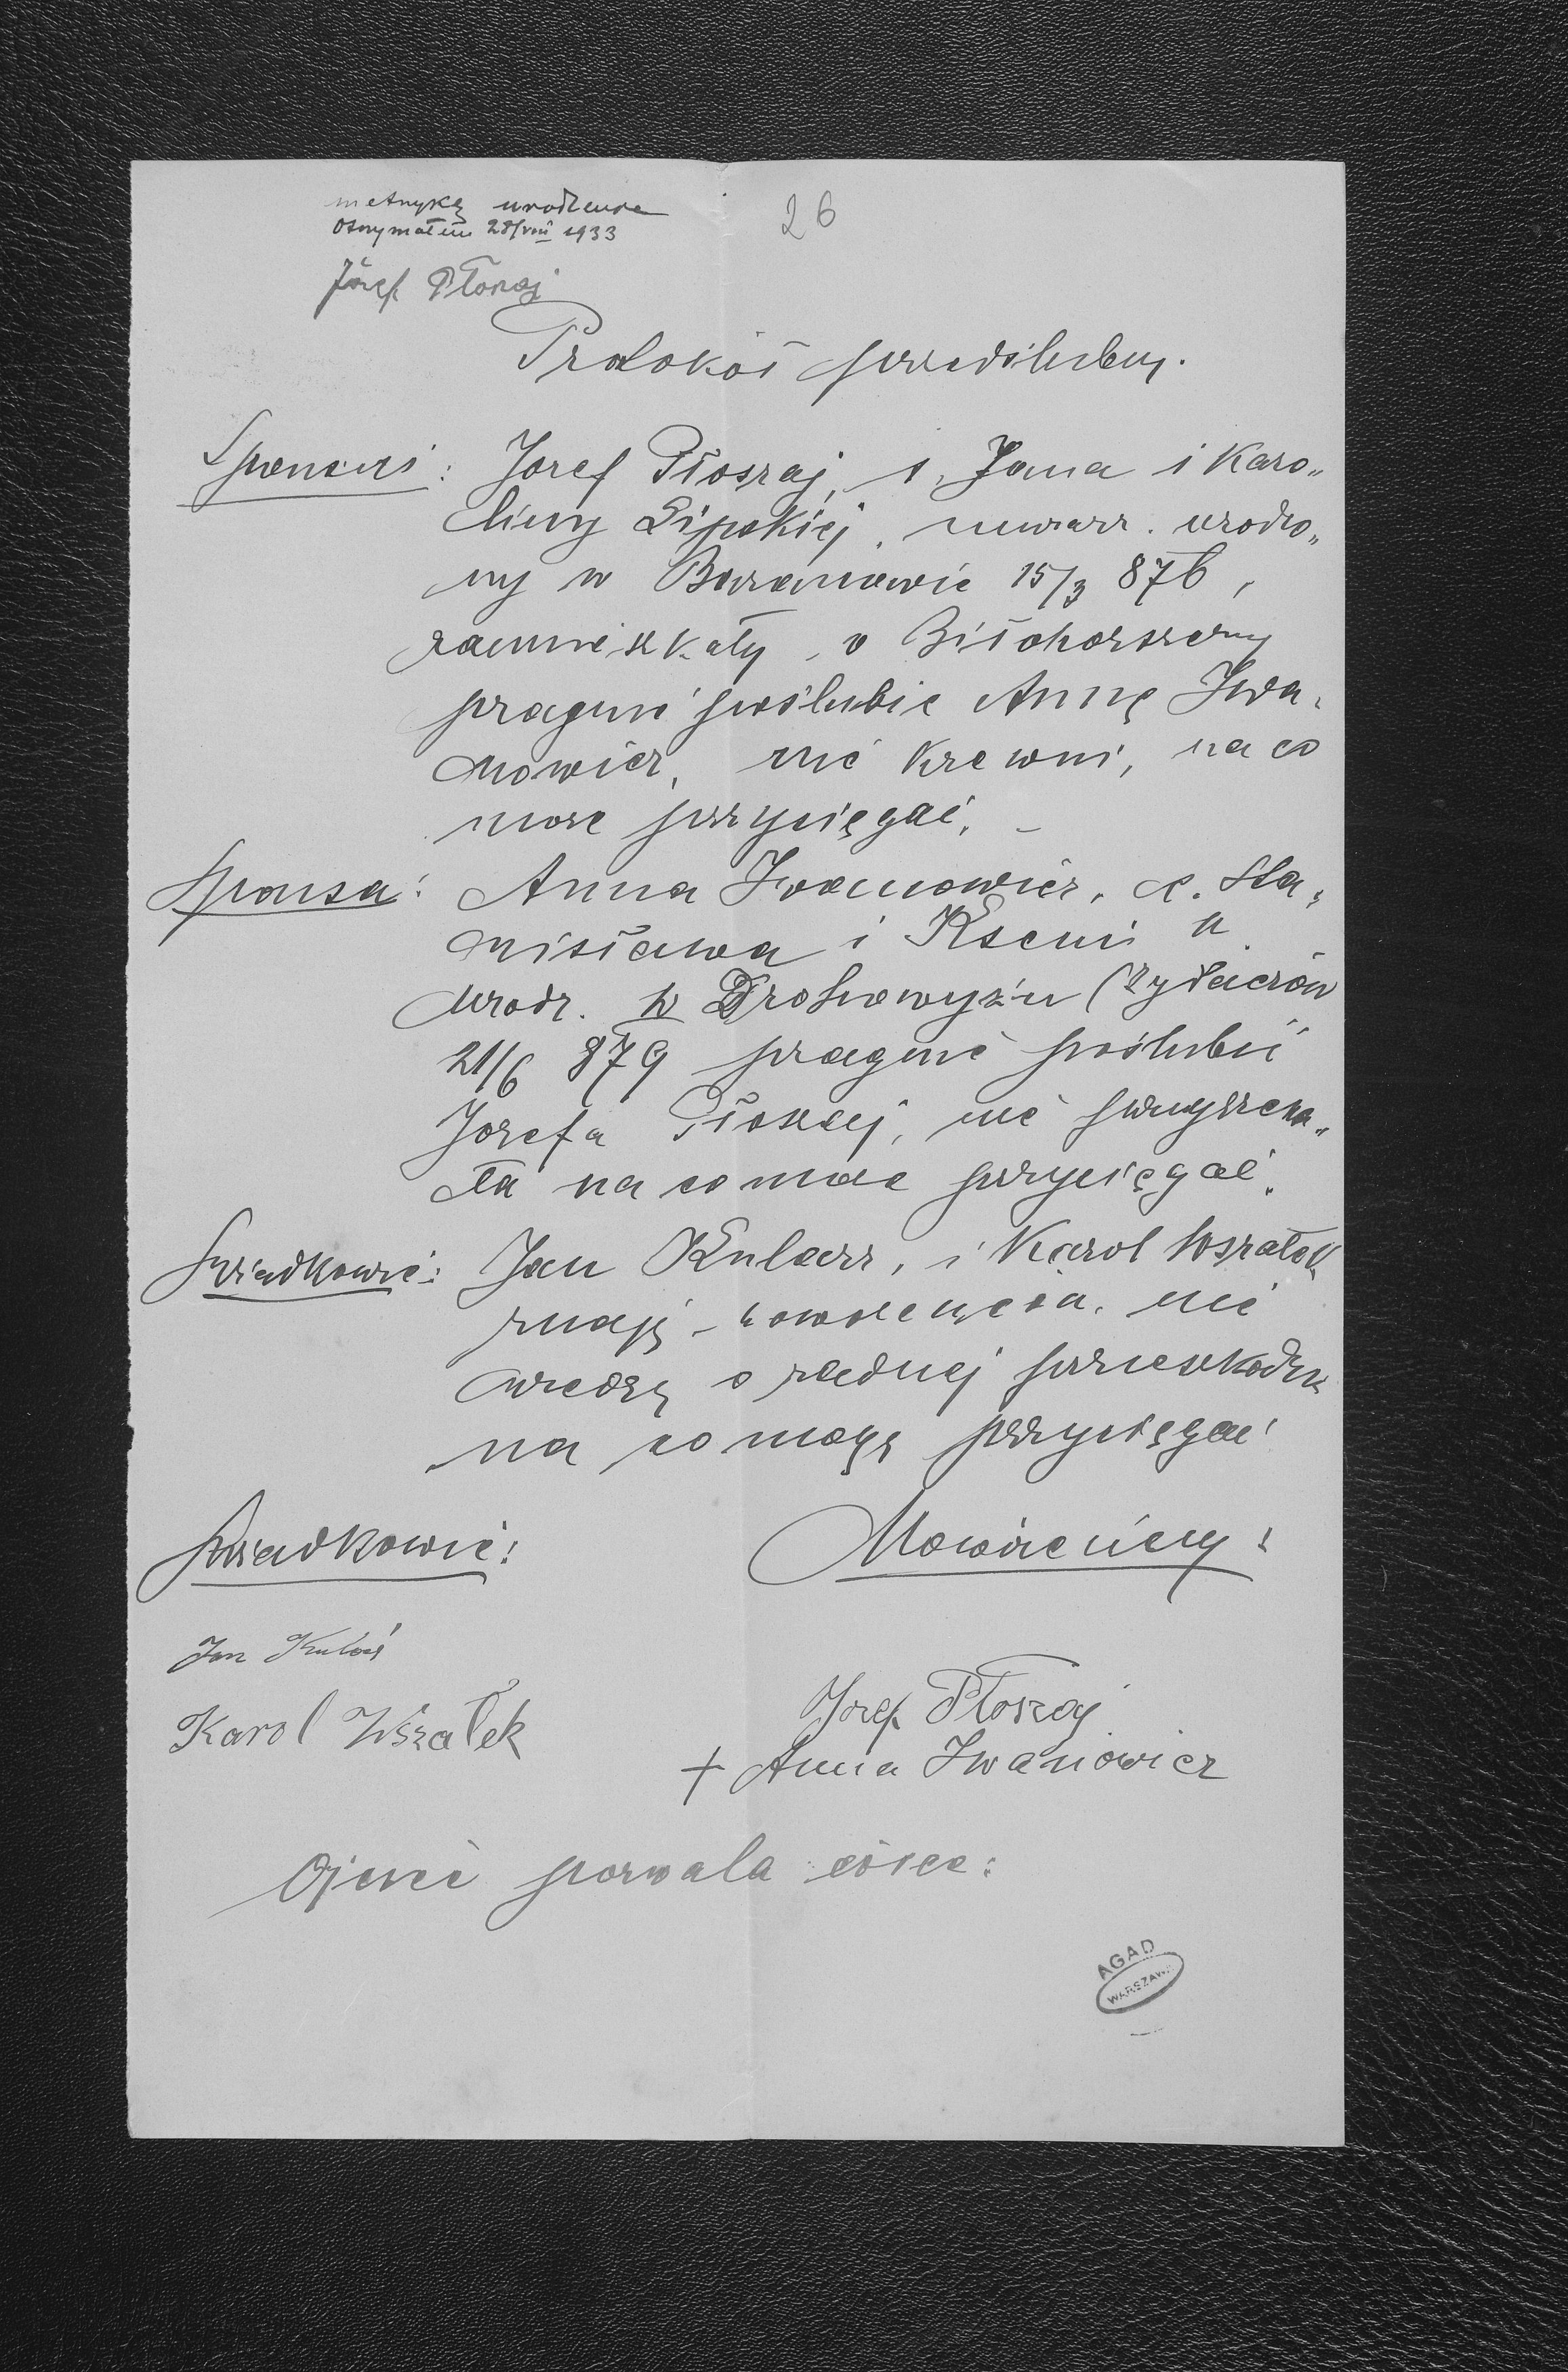 metrykę urodzenia
otrzymałem 28/VIII 1933
Józef Płoszaj
26
Protokół przedślubny.
Sponsus: Józef Płoszaj, s. Jana i Karo„
liny Lipskiej, murarz. urodzo„
ny w Baranowie 15/3 876,
zamieszkały w Biłohorszczy
pragnie poślubić Annę Iwa„
nowicz, nie krewni, na co
może przysięgać. –
Sponsa: Anna Iwanowicz, c. Sta„
nisława i Kseni
urodz. w Drohowyżu (Żydaczów
21/6 879 pragnie poślubić
Józefa Płoszaj, nie przyrzeka„
ła na co może przysięgać.
Świadkowie: Jan Kularz, i Karol Wszałek
znają nowożeńców. nie
wiedzą o żadnej przeszkodzie
na co mogą przysięgać
Świadkowie:
Nowożeńcy:
Jan
Karol Wszałek
Józef Płoszaj
+ Anna Iwanowicz
Ojciec pozwala córce:
AGAD
WARSZAWA